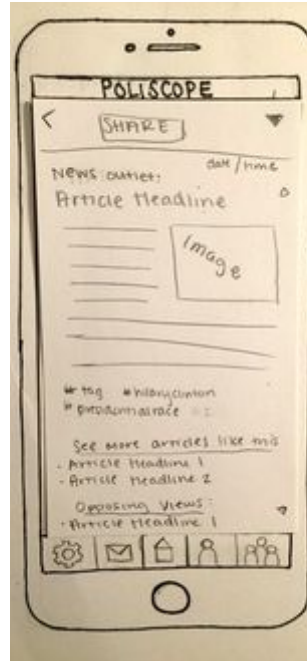 POLISCOPE
<
SHARE
date/time
News outlet:
Article Headline
Image
# tag #hilaryclinton
# presidentialrace
See more articles like this
- Article Headline 1
- Article Headline 2
Opposing Views:
- Article Headline 1